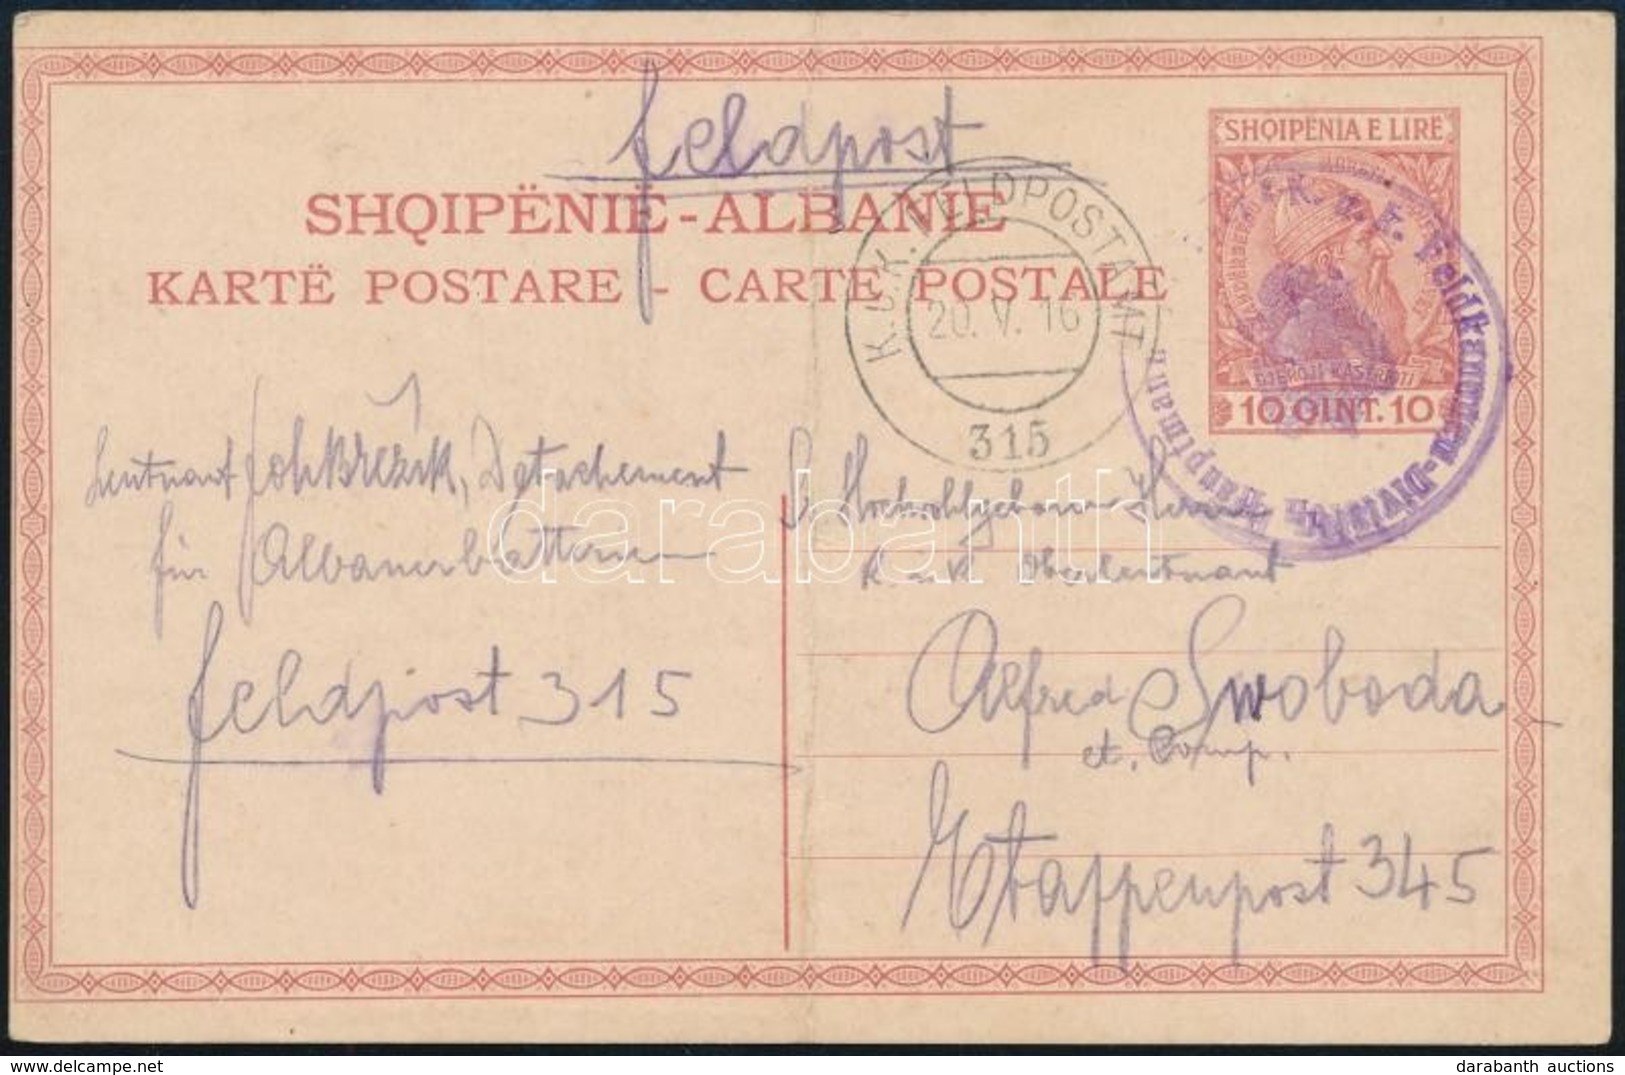 Feldpost
SHQIPËNIE-ALBANIE
KARTË POSTARE - CARTE POSTALE
SHQIPËNIA E LIRË
GJERGJ KASTRIOTI
10 QINT. 10
K.u.K. FELDPOSTAMT
20. V. 16
315
K. u. k. Feldkanonen-Division
Hauptmann
Leutnant Joh Březik, Detachement
für Albanerblattern
Feldpost 315
S. Hochwohlgeboren Herrn
K. u. K. Oberleutnant
Alfred Swoboda
et. Comp.
Etappenpost 345
darabanth
darabanth auctions